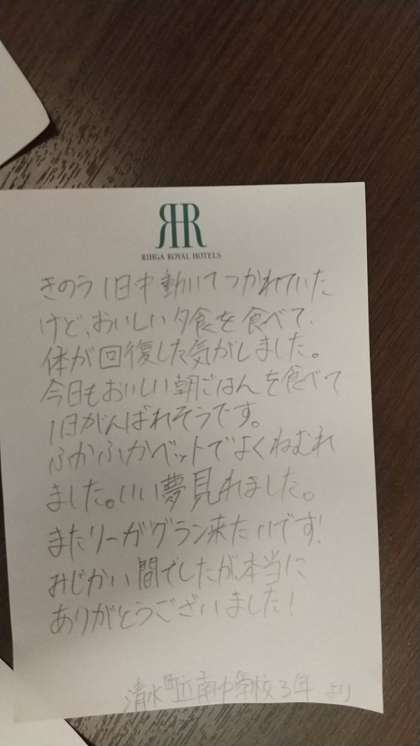 RIHGA ROYAL HOTELS
きのう1日中動いてつかれていた
けど、おいしい夕食を食べて、
体が回復した気がしました。
今日もおいしい朝ごはんを食べて
1日がんばれそうです。
ふかふかベットでよくねむれ
ました。いい夢見れました。
またリーガグラン来たいです!
おじかい間でしたが、本当に
ありがとうございました!
清水町 南中学校3年 より